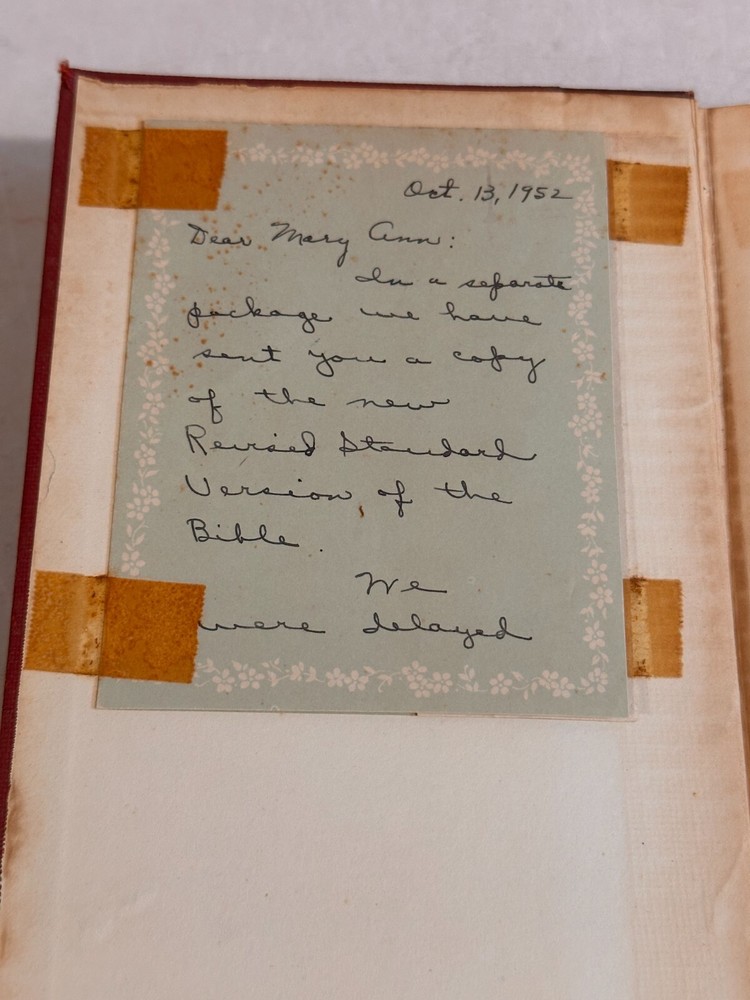 Oct. 13, 1952
Dear Mary Ann:
In a separate
package we have
sent you a copy
of the new
Revised Standard
Version of the
Bible.
We
were delayed